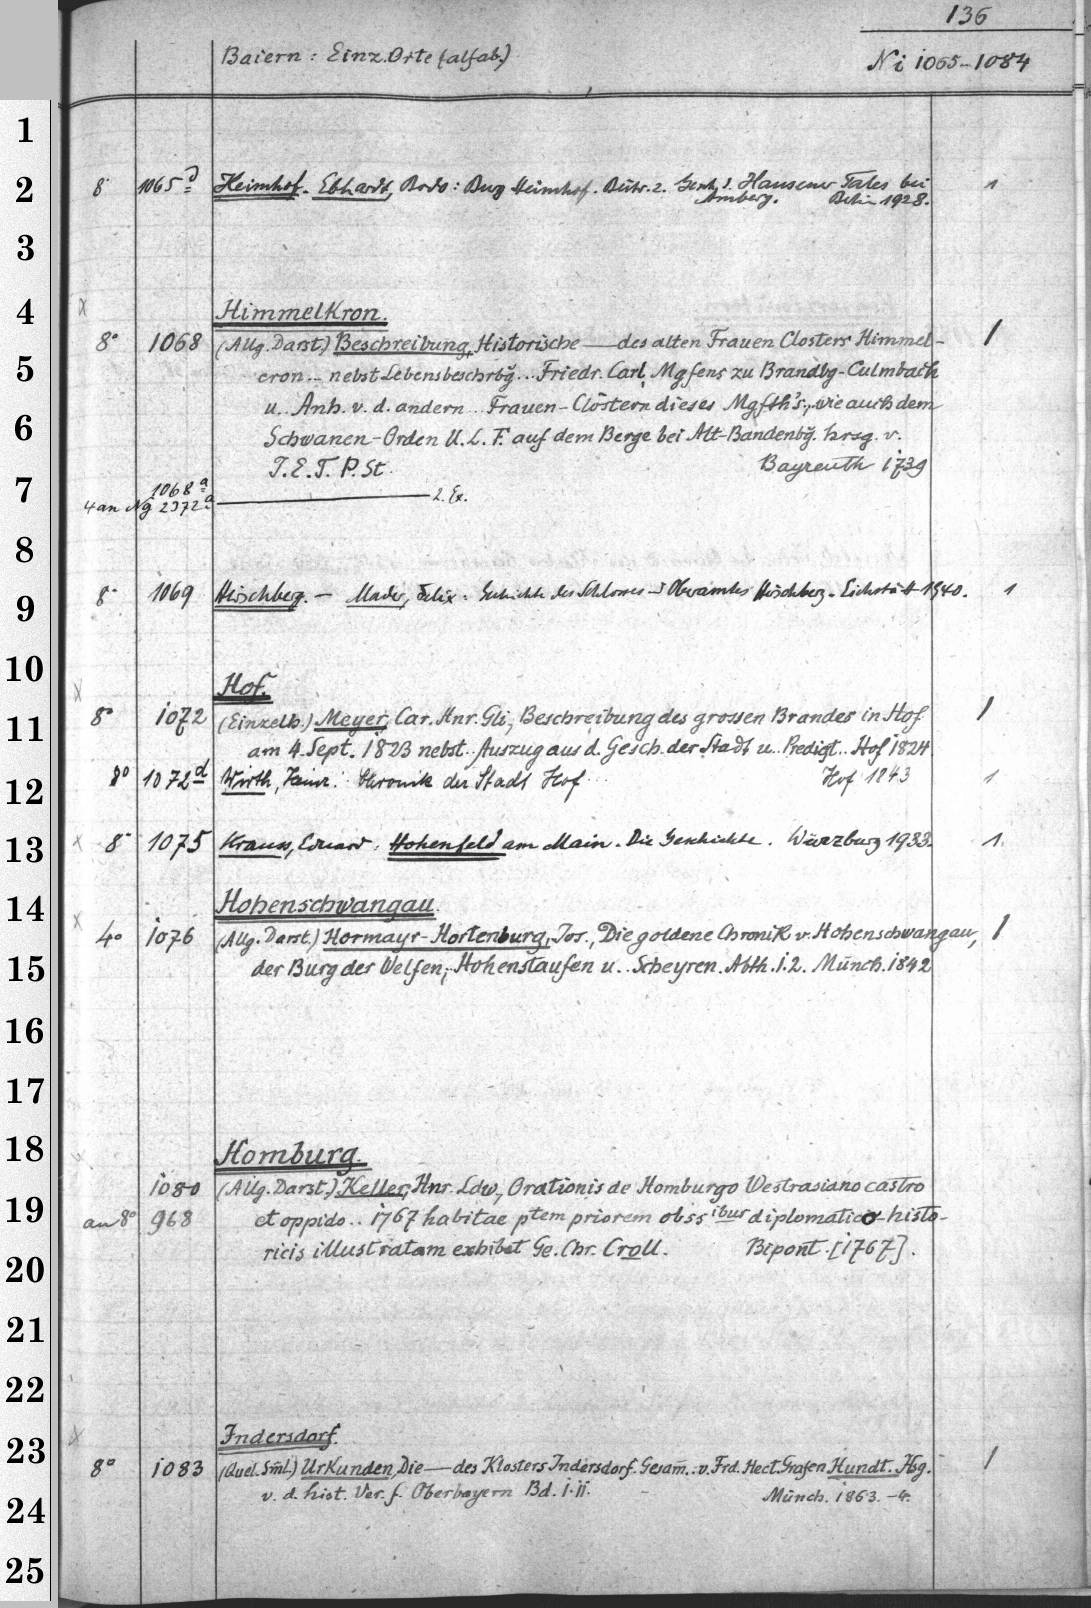 136
Baiern: Einz. Orte (alfab.)
Ni 1065-1084
1
2
3
4
5
6
7
8
9
10
11
12
13
14
15
16
17
18
19
20
21
22
23
24
25
8° 1065 d Heimhof. Ebhardt, Bodo: Burg Heimhof. Beitr. z. Gesch. d. Hausener Tales bei 1
Amberg. Berlin 1928.
Himmelkron.
8° 1068 (Allg. Darst.) Beschreibung, Historische — des alten Frauen Closters Himmel- 1
cron .. nebst Lebensbeschrbg̃ .. Friedr. Carl, Mgfens zu Brandbg-Culmbach
u. Anh. v. d. andern .. Frauen-Clöstern dieses Mgfth's., wie auch dem
Schwanen-Orden U. L. F. auf dem Berge bei Alt-Bandenbg̃. hrsg. v.
T. E. T. P. St. Bayreuth 1739
1068 a
4 an Ng 2372 a — 2. Ex.
8° 1069 Hirschberg. — Mader, Felix: Geschichte des Schlosses u. Oberamtes Hirschberg. Eichstätt 1940. 1
Hof.
8° 1072 (Einzelh.) Meyer, Car. Hnr. Gli, Beschreibung des grossen Brandes in Hof 1
am 4. Sept. 1823 nebst .. Auszug aus d. Gesch. der Stadt u. .. Predigt .. Hof 1824
8° 1072 d Wirth, Heinr.: Chronik der Stadt Hof Hof 1843 1
8° 1075 Krauss, Eduard: Hohenfeld am Main. Die Geschichte. Würzburg 1933. 1
Hohenschwangau.
4° 1076 (Allg. Darst.) Hormayr-Hortenburg, Jos., Die goldene Chronik v. Hohenschwangau, 1
der Burg der Welfen, Hohenstaufen u. .. Scheyren. Abth. 1. 2. Münch. 1842
Homburg.
1080 (Allg. Darst.) Keller, Hnr. Ldw, Orationis de Homburgo Westrasiano castro
an 8° 968 et oppido .. 1767 habitae ptem priorem obss ibus diplomatico-histo-
ricis illustratam exhibet Ge. Chr. Croll. Bipont. [1767].
Indersdorf.
8° 1083 (Quel. Sm̃l.) Urkunden, Die — des Klosters Indersdorf. Gesam̃. .. v. Frd. Hect. Grafen Hundt. Hsg. 1
v. d. hist. Ver. f. Oberbayern Bd. I. II. Münch. 1863.-4.